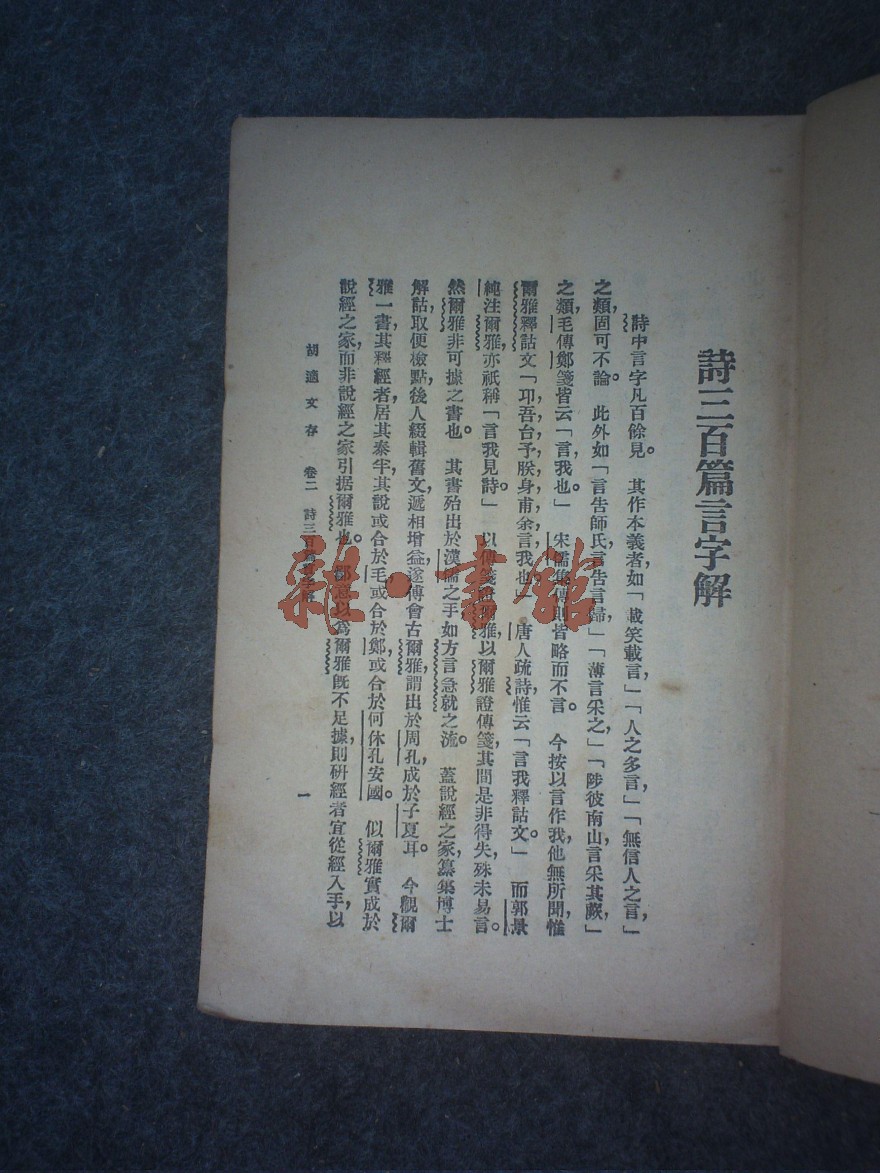 詩三百篇言字解
詩中言字凡百餘見。其作本義者,如「載笑載言,」「人之多言,」「無信人之言,」
之類,固可不論。此外如「言告師氏,言告言歸,」「薄言采之,」「陟彼南山,言采其蕨,」
之類,毛傳鄭箋皆云「言,我也。」宋儒集傳則皆略而不言。今按以言作我,他無所聞,惟
爾雅釋詁文「卬,吾,台,予,朕,身,甫,余,言,我也。」唐人疏詩,惟云「言我釋詁文。」而郭景
純注爾雅,亦祇稱「言我見詩。」以傳箋證爾雅,以爾雅證傳箋,其間是非得失,殊未易言。
然爾雅非可據之書也。其書殆出於漢儒之手,如方言急就之流。蓋說經之家,纂集博士
解詁,取便檢點,後人綴輯舊文,遞相增益,遂傅會古爾雅,謂出於周孔,成於子夏耳。今觀爾
雅一書,其釋經者,居其泰半,其說或合於毛,或合於鄭,或合於何休孔安國。似爾雅實成於
說經之家,而非說經之家引据爾雅也。鄙意以爲爾雅旣不足據,則硏經者宜從經入手,以
胡適文存 卷二 詩三百篇言字解
一
雜·書館